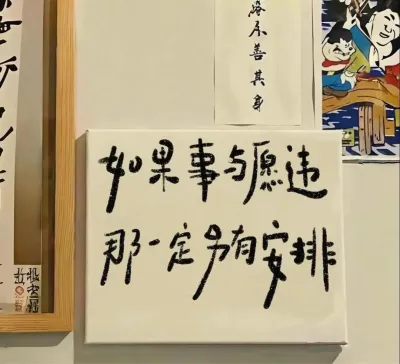 路不善其身
如果事与愿违
那一定另有安排